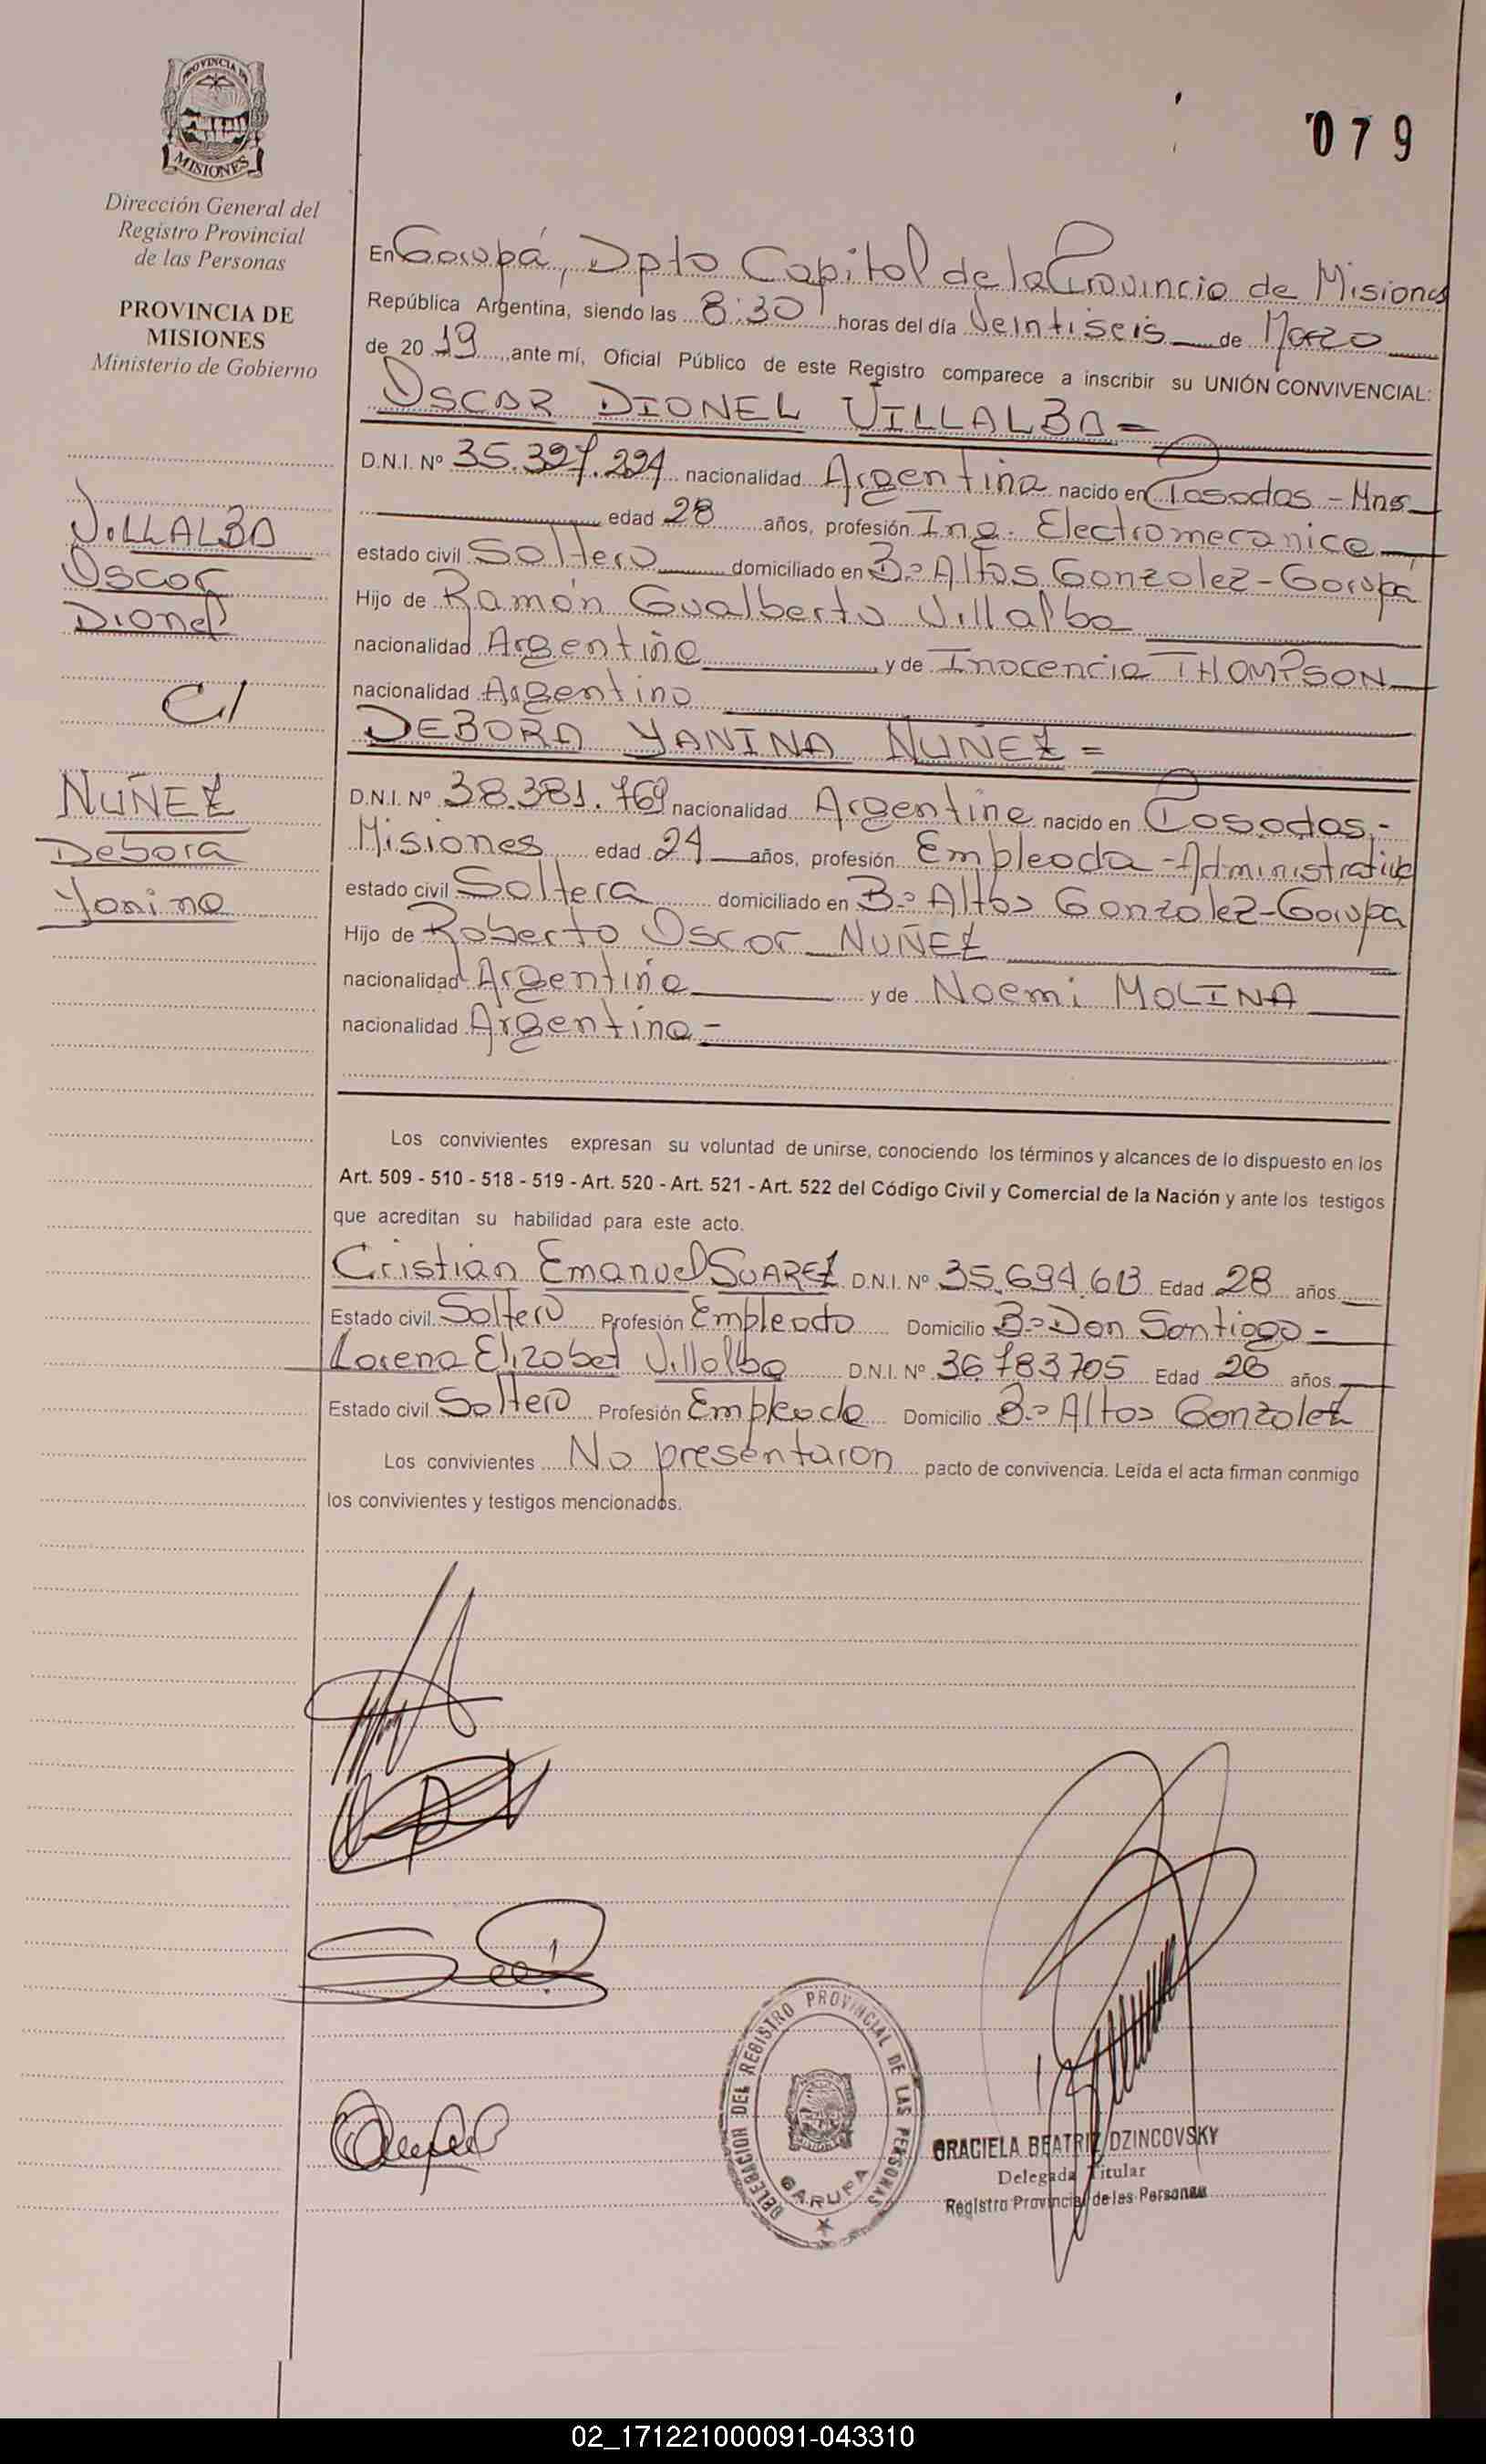 PROVINCIA DE
MISIONES
079
Dirección General del
Registro Provincial
de las Personas
PROVINCIA DE
MISIONES
Ministerio de Gobierno
VILLALBA
Oscar
Dionel
C/
NUÑEZ
Debora
Yanina
En Garupá, Dpto Capital de la Provincia de Misiones
República Argentina, siendo las 8:30 horas del día Veintiseis de Marzo
de 2019, ante mí, Oficial Público de este Registro comparece a inscribir su UNIÓN CONVIVENCIAL:
OSCAR DIONEL VILLALBA=
D.N.I. Nº 35.327.294 nacionalidad Argentina nacido en Posadas - Mnes
edad 28 años, profesión Ing. Electromecanico
estado civil Soltero domiciliado en Bº Altos Gonzalez - Garupá
Hijo de Ramón Gualberto Villalba
nacionalidad Argentina y de Inocencia THOMPSON
nacionalidad Argentina
DEBORA YANINA NUÑEZ =
D.N.I. Nº 38.381.769 nacionalidad Argentina nacido en Posadas -
Misiones edad 24 años, profesión Empleada - Administrativa
estado civil Soltera domiciliado en Bº Altos Gonzalez - Garupa
Hijo de Roberto Oscar NUÑEZ
nacionalidad Argentina y de Noemi MOLINA
nacionalidad Argentina -
Los convivientes expresan su voluntad de unirse, conociendo los términos y alcances de lo dispuesto en los
Art. 509 - 510 - 518 - 519 - Art. 520 - Art. 521 - Art. 522 del Código Civil y Comercial de la Nación y ante los testigos
que acreditan su habilidad para este acto.
Cristian Emanuel SUAREZ D.N.I. Nº 35.694.613 Edad 28 años
Estado civil Soltero Profesión Empleado Domicilio Bº Don Santiago -
Lorena Elizabet Villalba D.N.I. Nº 36.783705 Edad 26 años
Estado civil Soltero Profesión Empleada Domicilio Bº Altos Gonzalez
Los convivientes No presentaron pacto de convivencia. Leída el acta firman conmigo
los convivientes y testigos mencionados.
DELEGACION DEL REGISTRO PROVINCIAL DE LAS PERSONAS
GARUPA
GRACIELA BEATRIZ DZINCOVSKY
Delegada Titular
Registro Provincial de las Personas
02_171221000091-043310